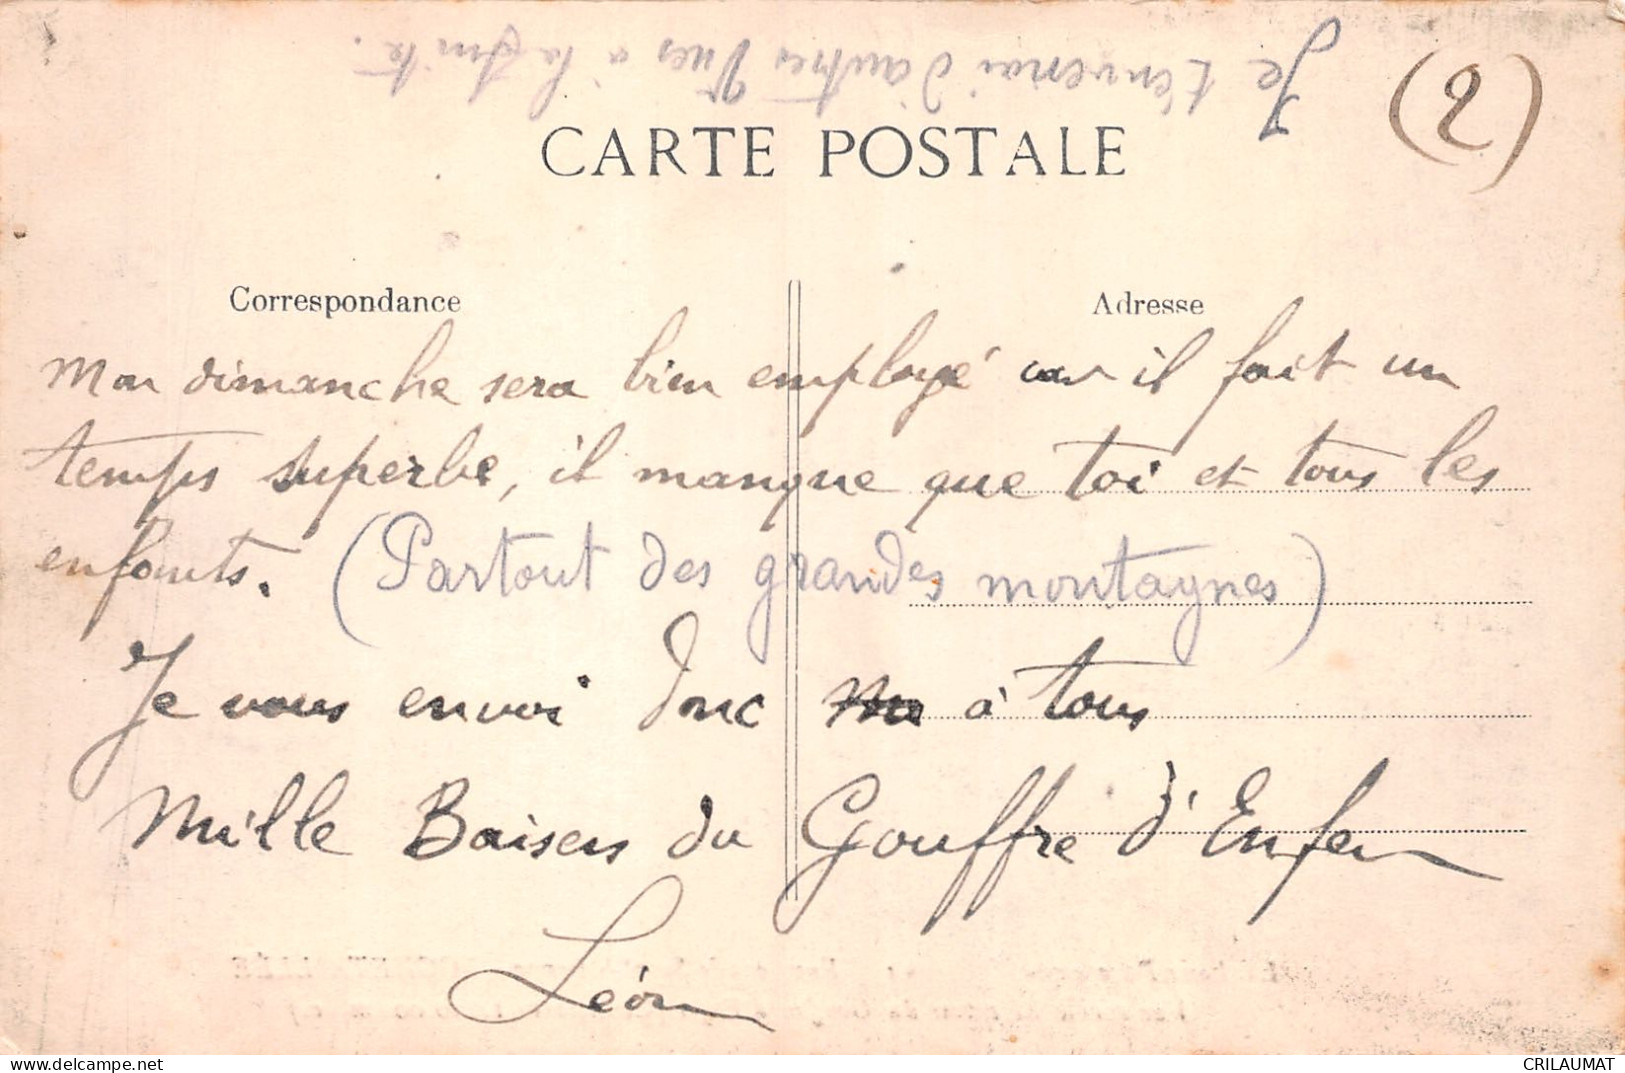 Je t'enverrai d'autres Vues à la suite.
(2)
CARTE POSTALE
Correspondance
Adresse
Mon dimanche sera bien employé car il fait un
temps superbe, il manque que toi et tous les
enfants. (Partout des grandes montagnes)
Je vous envoi donc à tous
Mille Baisers du Gouffre d'Enfer
Léon
CRILAUMAT